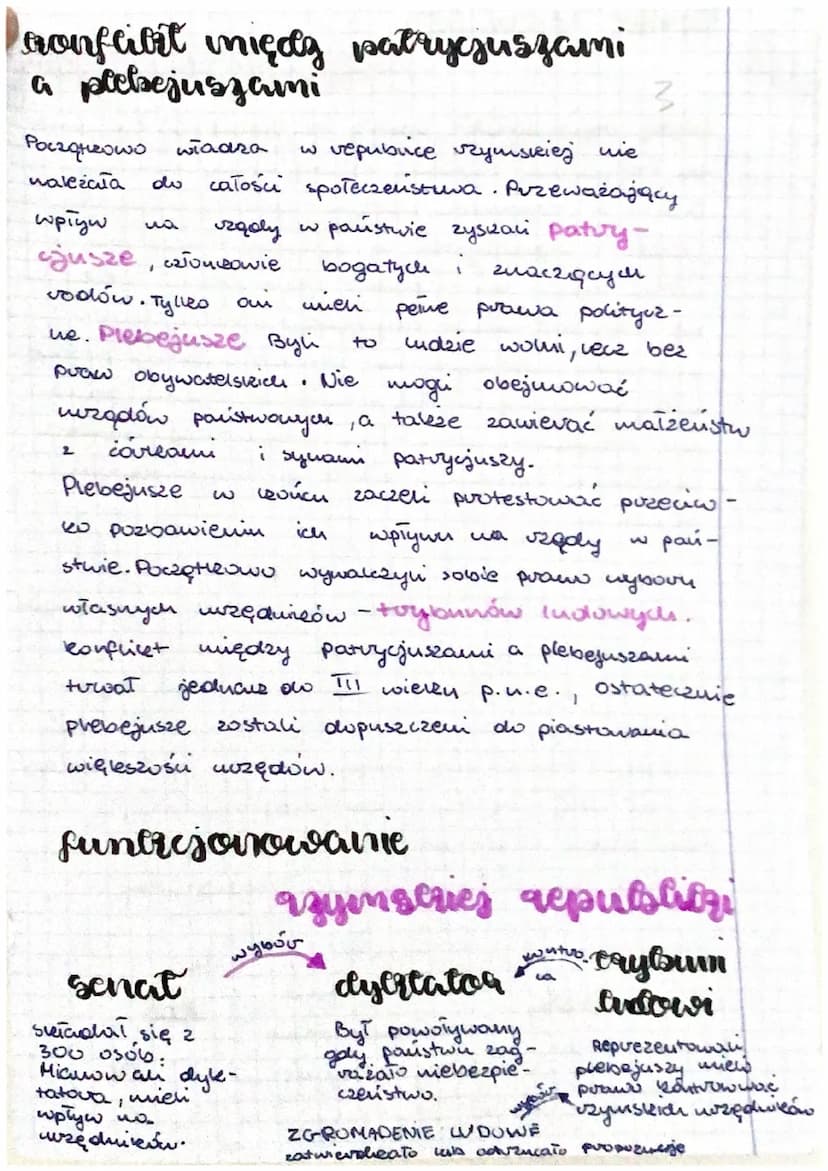 konflikt między patrycjuszami
a plebejuszami
3
Początkowo władza w republice rzymskiej nie
należała do całości społeczeństwa. Przeważający
wpływ na rządy w państwie zyskali patry-
cjusze, członkowie bogatych i znaczących
rodów. Tylko oni mieli pełne prawa politycz-
ne. Plebejusze Byli to ludzie wolni, lecz bez
praw obywatelskich. Nie mogli obejmować
urzędów państwowych, a także zawierać małżeństw
z córkami i synami patrycjuszy.
Plebejusze w końcu zaczeli protestować przeciw-
ko pozbawieniu ich wpływu na rządy w pań-
stwie. Początkowo wywalczyli sobie prawo wyboru
własnych urzędników - trybunów ludowych.
konflikt między patrycjuszami a plebejuszami
trwał jednak do III wieku p.n.e., ostatecznie
plebejusze zostali dopuszczeni do piastowania
większości urzędów.
funkcjonowanie
rzymskiej republiki
wybór
kontro
la
senat
dyktator
trybuni
ludowi
składał się z
300 osób.
Mianowali dyk-
tatora, mieli
wpływ na
urzędników.
Był powoływany
gdy państwu zag-
rażało niebezpie-
czeństwo.
Reprezentowali
plebejuszy mieli
prawo kontrolować
rzymskich urzędników
wybór
ZGROMADENIE LUDOWE
zatwierdzało lub odrzucało propozycje